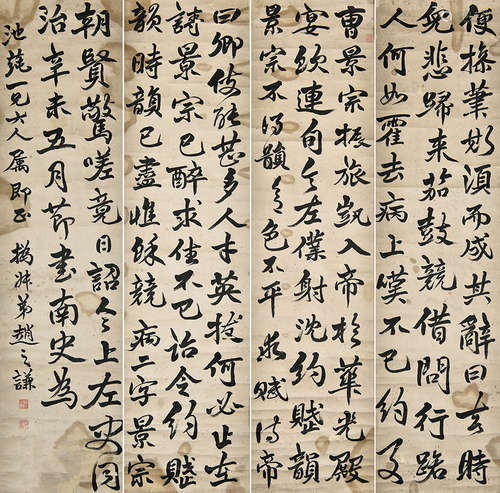 便操筆斯須而成其辭曰去時
兒悲歸來笳鼓競借問行路
人何如霍去病上嘆不已約及
曹景宗振旅凱入帝於華光殿
宴飲連句令左僕射沈約賦韻
景宗不得韻意色不平求賦詩帝
曰卿伎能甚多人才英拔何必止在
詩景宗已醉求作不已詔令約賦
韻時韻已盡惟餘競病二字景宗
朝賢驚嗟竟日詔令上左史同
治辛未五月節書南史為
池兄大人屬即正 撝叔弟趙之謙